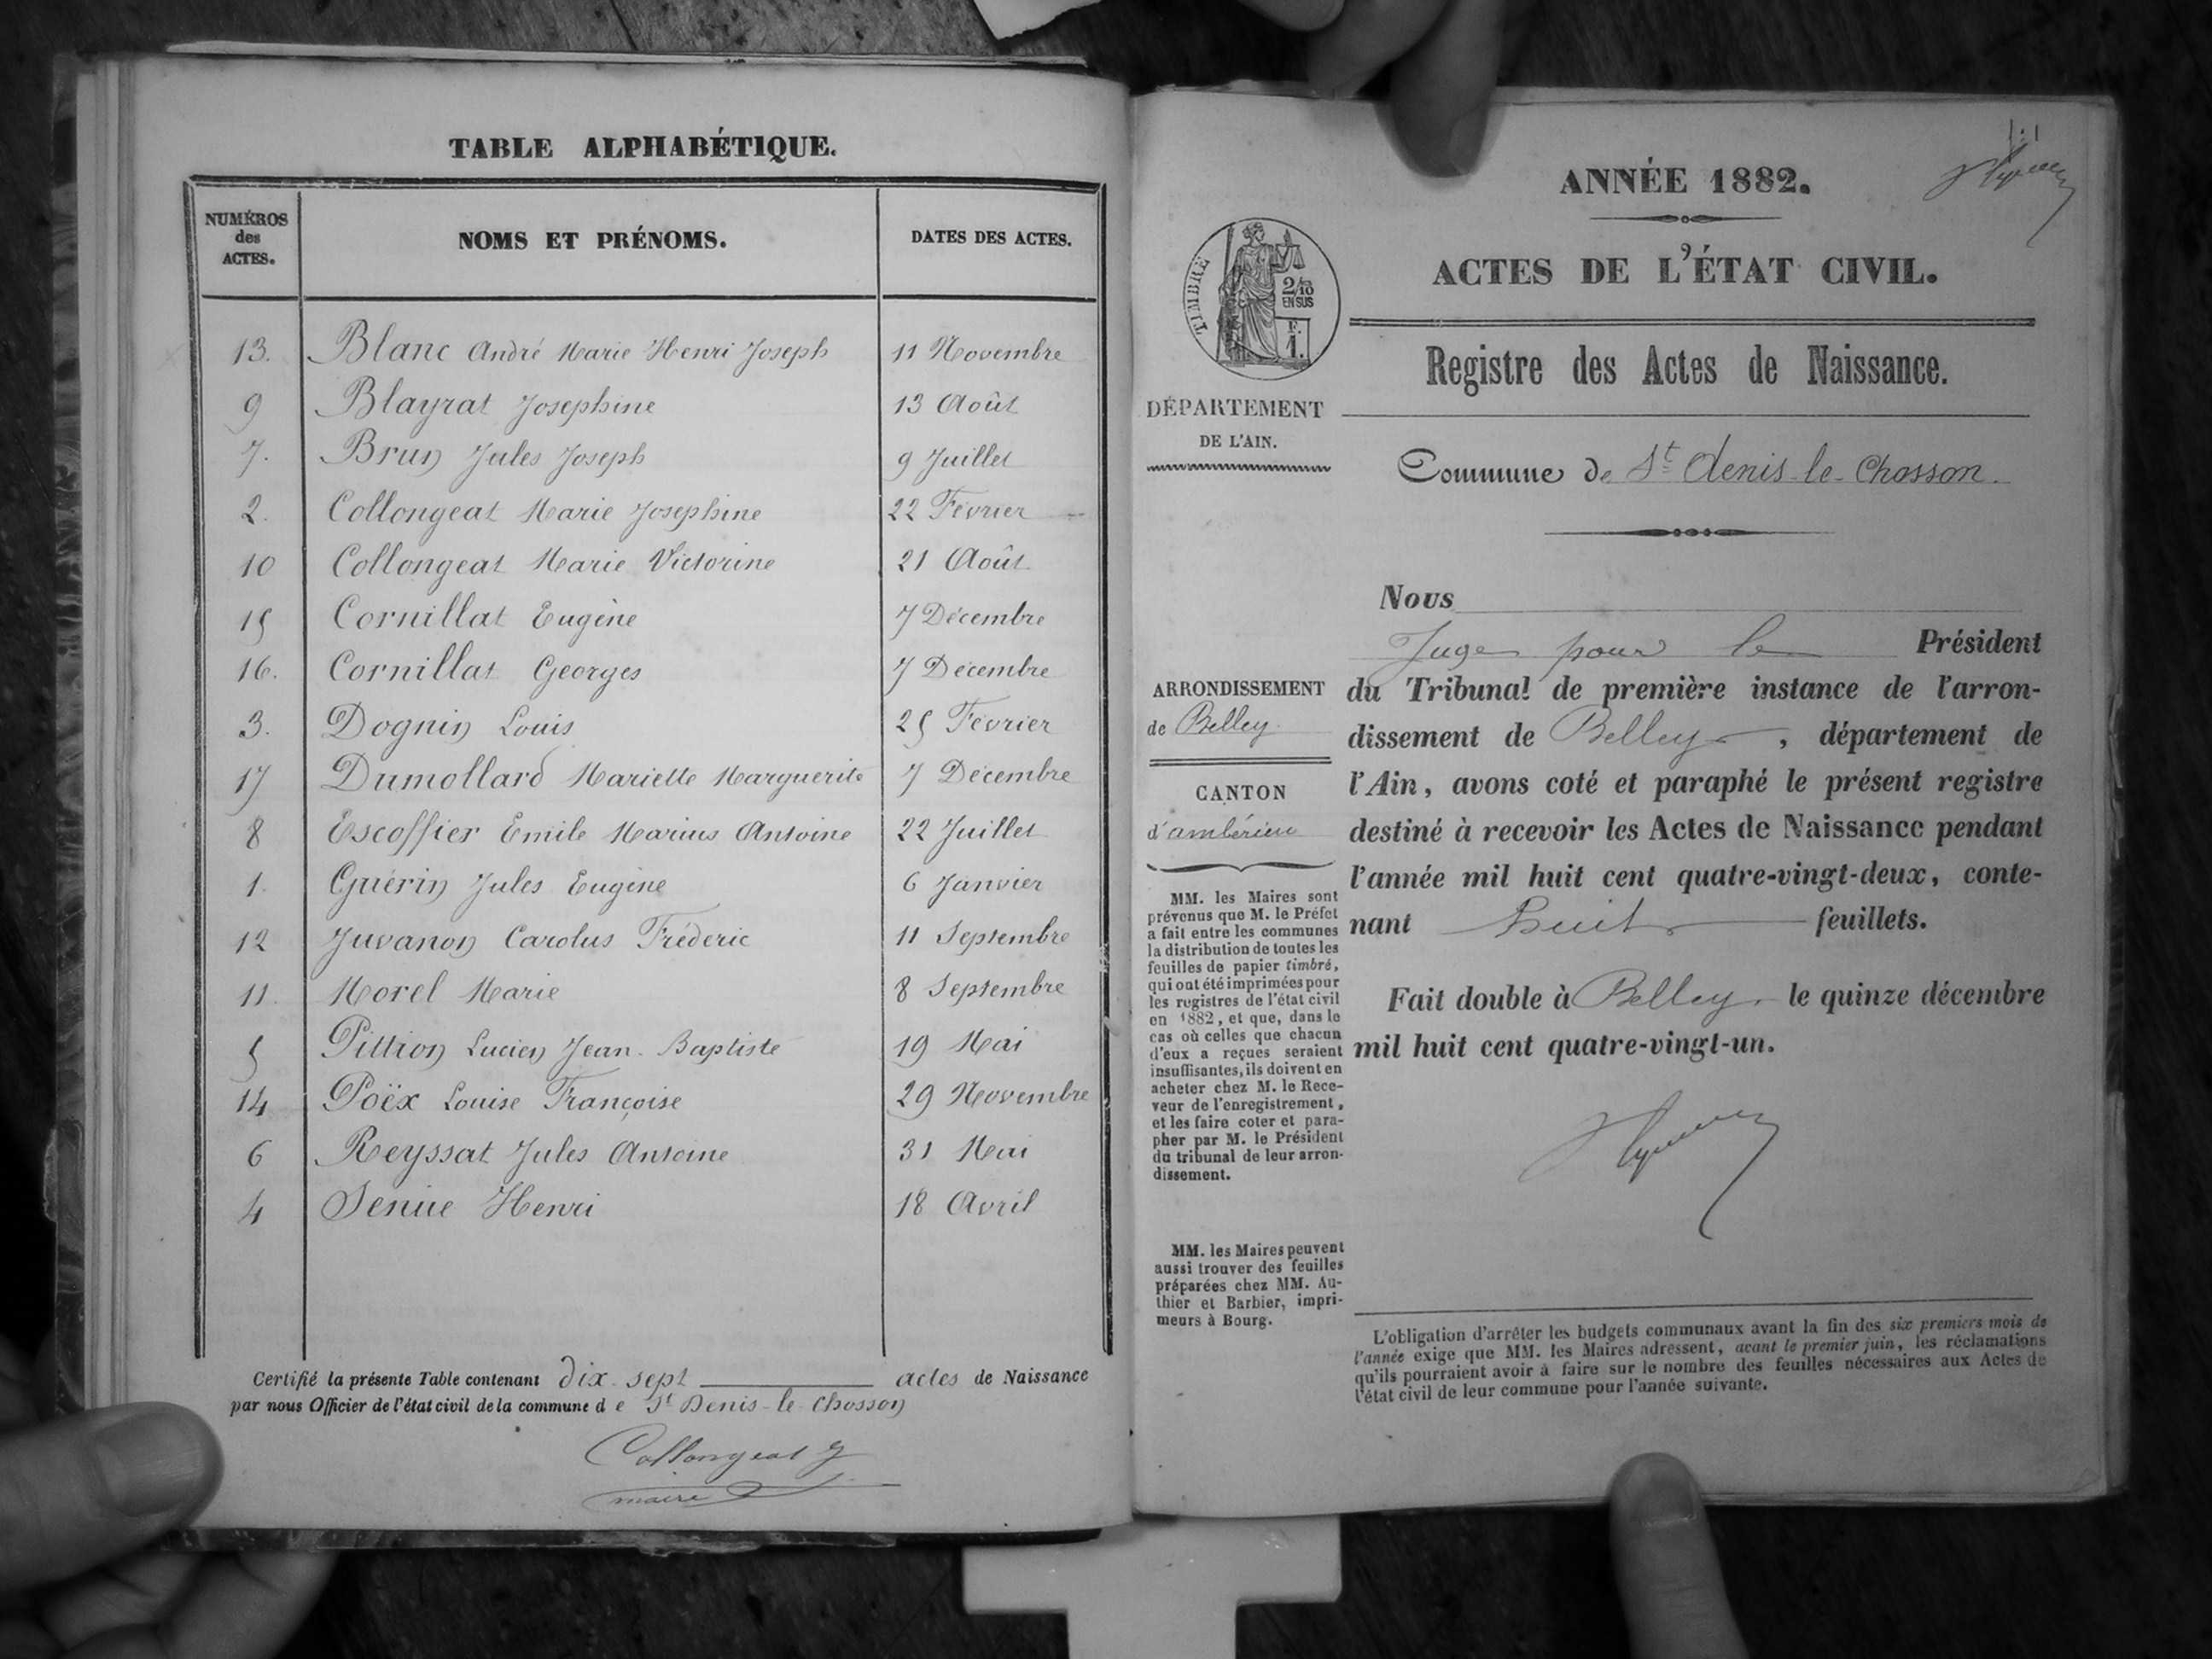 TABLE ALPHABÉTIQUE.
NUMÉROS des ACTES. NOMS ET PRÉNOMS. DATES DES ACTES.
13. Blanc André Marie Henri Joseph 11 Novembre
9 Blayrat Josephine 13 Août
7. Brun Jules Joseph 9 Juillet
2. Collongeat Marie Josephine 22 Février
10 Collongeat Marie Victorine 21 Août
15 Cornillat Eugène 7 Décembre
16. Cornillat Georges 7 Décembre
3. Dognin Louis 25 Février
17 Dumollard Mariette Marguerite 7 Décembre
8 Escoffier Emile Marius Antoine 22 Juillet
1. Guérin Jules Eugène 6 Janvier
12 Juvanon Carolus Fréderic 11 Septembre
11. Morel Marie 8 Septembre
5 Pittion Lucien Jean-Baptiste 19 Mai
14 Poëx Louise Françoise 29 Novembre
6 Reyssat Jules Antoine 31 Mai
4 Henri 18 Avril
Certifié la présente Table contenant dix-sept actes de Naissance
par nous Officier de l'état civil de la commune de St Denis-le-Chosson
Collongeat J
maire
1:1
ANNÉE 1882.
ACTES DE L'ÉTAT CIVIL.
TIMBRE
2/10
EN SUS
F.
1.
Registre des Actes de Naissance.
DÉPARTEMENT
DE L'AIN.
Commune de St denis-le-Chosson.
Nous
Juge pour le Président
du Tribunal de première instance de l'arron-
dissement de Belley, département de
l'Ain, avons coté et paraphé le présent registre
destiné à recevoir les Actes de Naissance pendant
l'année mil huit cent quatre-vingt-deux, conte-
nant huit feuillets.
Fait double à Belley le quinze décembre
mil huit cent quatre-vingt-un.
ARRONDISSEMENT
de Belley
CANTON
d'ambérieu
MM. les Maires sont
prévenus que M. le Préfet
a fait entre les communes
la distribution de toutes les
feuilles de papier timbré,
qui ont été imprimées pour
les registres de l'état civil
en 1882, et que, dans le
cas où celles que chacun
d'eux a reçues seraient
insuffisantes, ils doivent en
acheter chez M. le Rece-
veur de l'enregistrement,
et les faire coter et para-
pher par M. le Président
du tribunal de leur arron-
dissement.
MM. les Maires peuvent
aussi trouver des feuilles
préparées chez MM. Au-
thier et Barbier, impri-
meurs à Bourg.
L'obligation d'arrêter les budgets communaux avant la fin des six premiers mois de
l'année exige que MM. les Maires adressent, avant le premier juin, les réclamations
qu'ils pourraient avoir à faire sur le nombre des feuilles nécessaires aux Actes de
l'état civil de leur commune pour l'année suivante.